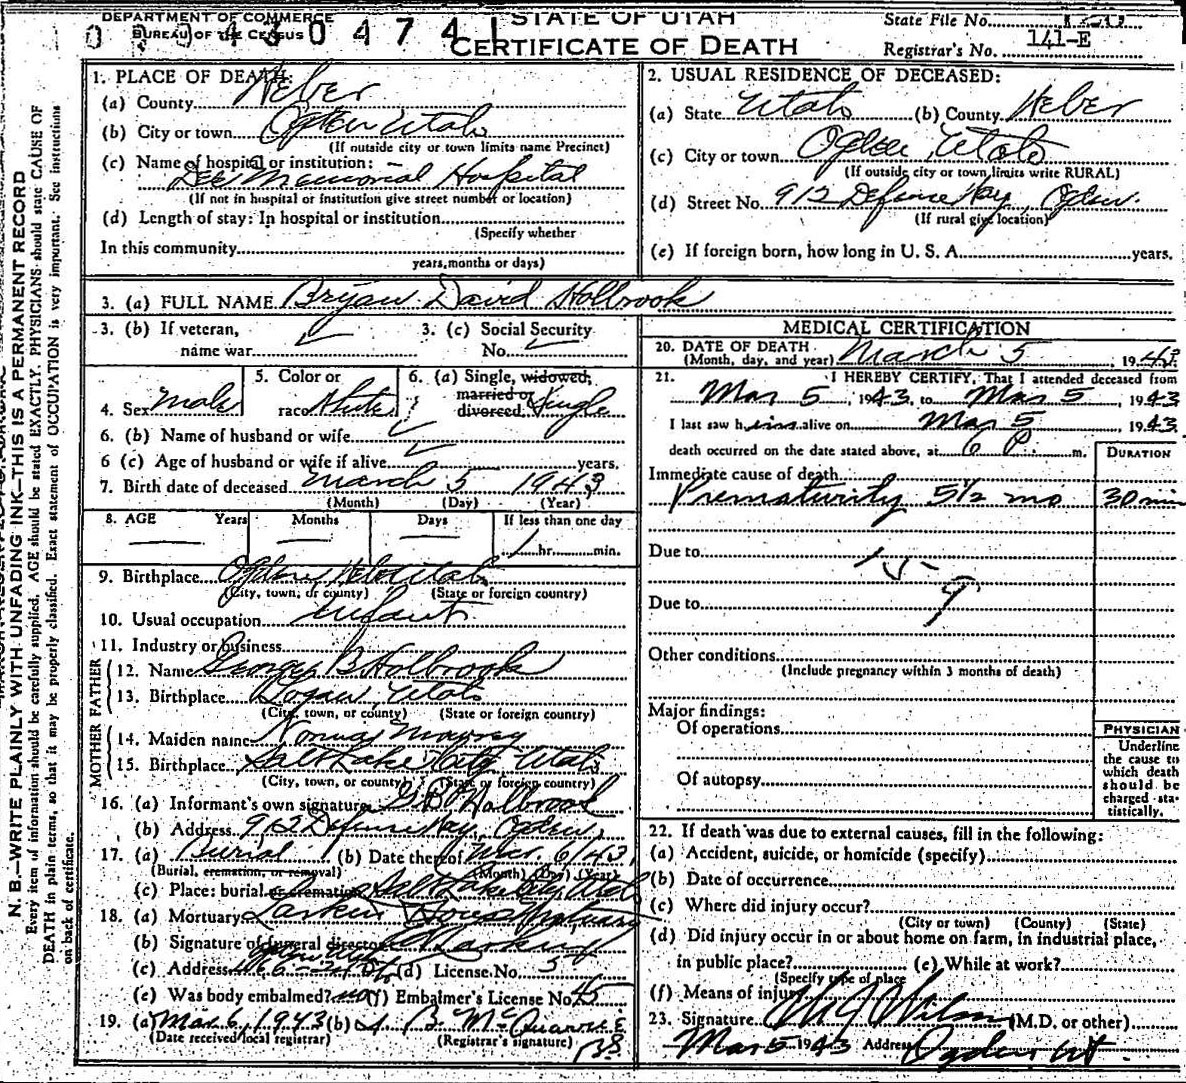 DEPARTMENT OF COMMERCE
BUREAU OF THE CENSUS
04741
STATE OF UTAH
CERTIFICATE OF DEATH
State File No.
Registrar's No. 141-E
N. B.—WRITE PLAINLY WITH UNFADING INK—THIS IS A PERMANENT RECORD
Every item of information should be carefully supplied. AGE should be stated EXACTLY. PHYSICIANS should state CAUSE OF
DEATH in plain terms, so that it may be properly classified. Exact statement of OCCUPATION is very important. See instructions
on back of certificate.
1. PLACE OF DEATH:
(a) County Weber
(b) City or town Ogden Utah
(If outside city or town limits name Precinct)
(c) Name of hospital or institution:
Dee Memorial Hospital
(If not in hospital or institution give street number or location)
(d) Length of stay: In hospital or institution
(Specify whether
In this community
years, months or days)
2. USUAL RESIDENCE OF DECEASED:
(a) State Utah (b) County Weber
(c) City or town Ogden, Utah
(If outside city or town limits write RURAL)
(d) Street No. 912 Defense Way, Ogden.
(If rural give location)
(e) If foreign born, how long in U. S. A. years.
3. (a) FULL NAME Bryan David Holbrook
3. (b) If veteran,
name war
3. (c) Social Security
No.
4. Sex Male
5. Color or
race White
6. (a) Single, widowed,
married or
divorced Single
6. (b) Name of husband or wife
6 (c) Age of husband or wife if alive years.
7. Birth date of deceased March 5 1943
(Month) (Day) (Year)
8. AGE Years Months Days If less than one day
hr. min.
9. Birthplace Ogden, Utah
(City, town, or county) (State or foreign country)
10. Usual occupation Infant
11. Industry or business
FATHER
12. Name George B Holbrook
13. Birthplace Logan, Utah
(City, town, or county) (State or foreign country)
MOTHER
14. Maiden name Norma
15. Birthplace Salt Lake City, Utah
(City, town, or county) (State or foreign country)
16. (a) Informant's own signature G B Holbrook
(b) Address 912 Defense Way, Ogden,
17. (a) Burial (b) Date thereof Mar 6/43,
(Burial, cremation, or removal) (Month) (Day) (Year)
(c) Place: burial or cremation Salt Lake City, Utah
18. (a) Mortuary Larkin
(b) Signature of funeral director Larkin
(c) Address (d) License No. 5
(e) Was body embalmed? no (f) Embalmer's License No. 45
19. (a) Mar 6, 1943 (b) B. McQuarrie
(Date received local registrar) (Registrar's signature)
MEDICAL CERTIFICATION
20. DATE OF DEATH
(Month, day, and year) March 5, 1943
21. I HEREBY CERTIFY, That I attended deceased from
Mar 5, 1943, to Mar 5, 1943
I last saw him alive on Mar 5 1943
death occurred on the date stated above, at 6 P. m.
DURATION
Immediate cause of death
Prematurity 5½ mo 30 min
Due to 15-
9
Due to
Other conditions
(Include pregnancy within 3 months of death)
Major findings:
Of operations
Of autopsy
PHYSICIAN
Underline
the cause to
which death
should be
charged sta-
tistically.
22. If death was due to external causes, fill in the following:
(a) Accident, suicide, or homicide (specify)
(b) Date of occurrence
(c) Where did injury occur?
(City or town) (County) (State)
(d) Did injury occur in or about home on farm, in industrial place,
in public place? (e) While at work?
(Specify type of place
(f) Means of injury
23. Signature Wilson (M.D. or other)
Mar 5 1943 Address Ogden Ut.